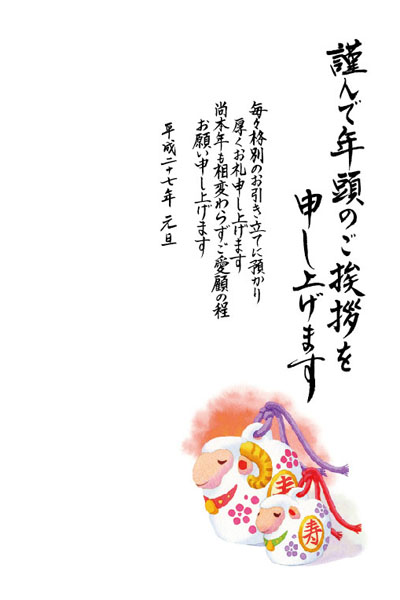 謹んで年頭のご挨拶を
申し上げます
毎々格別のお引き立てに預かり
厚くお礼申し上げます
尚本年も相変わらずご愛顧の程
お願い申し上げます
平成二十七年 元旦
寿
寿